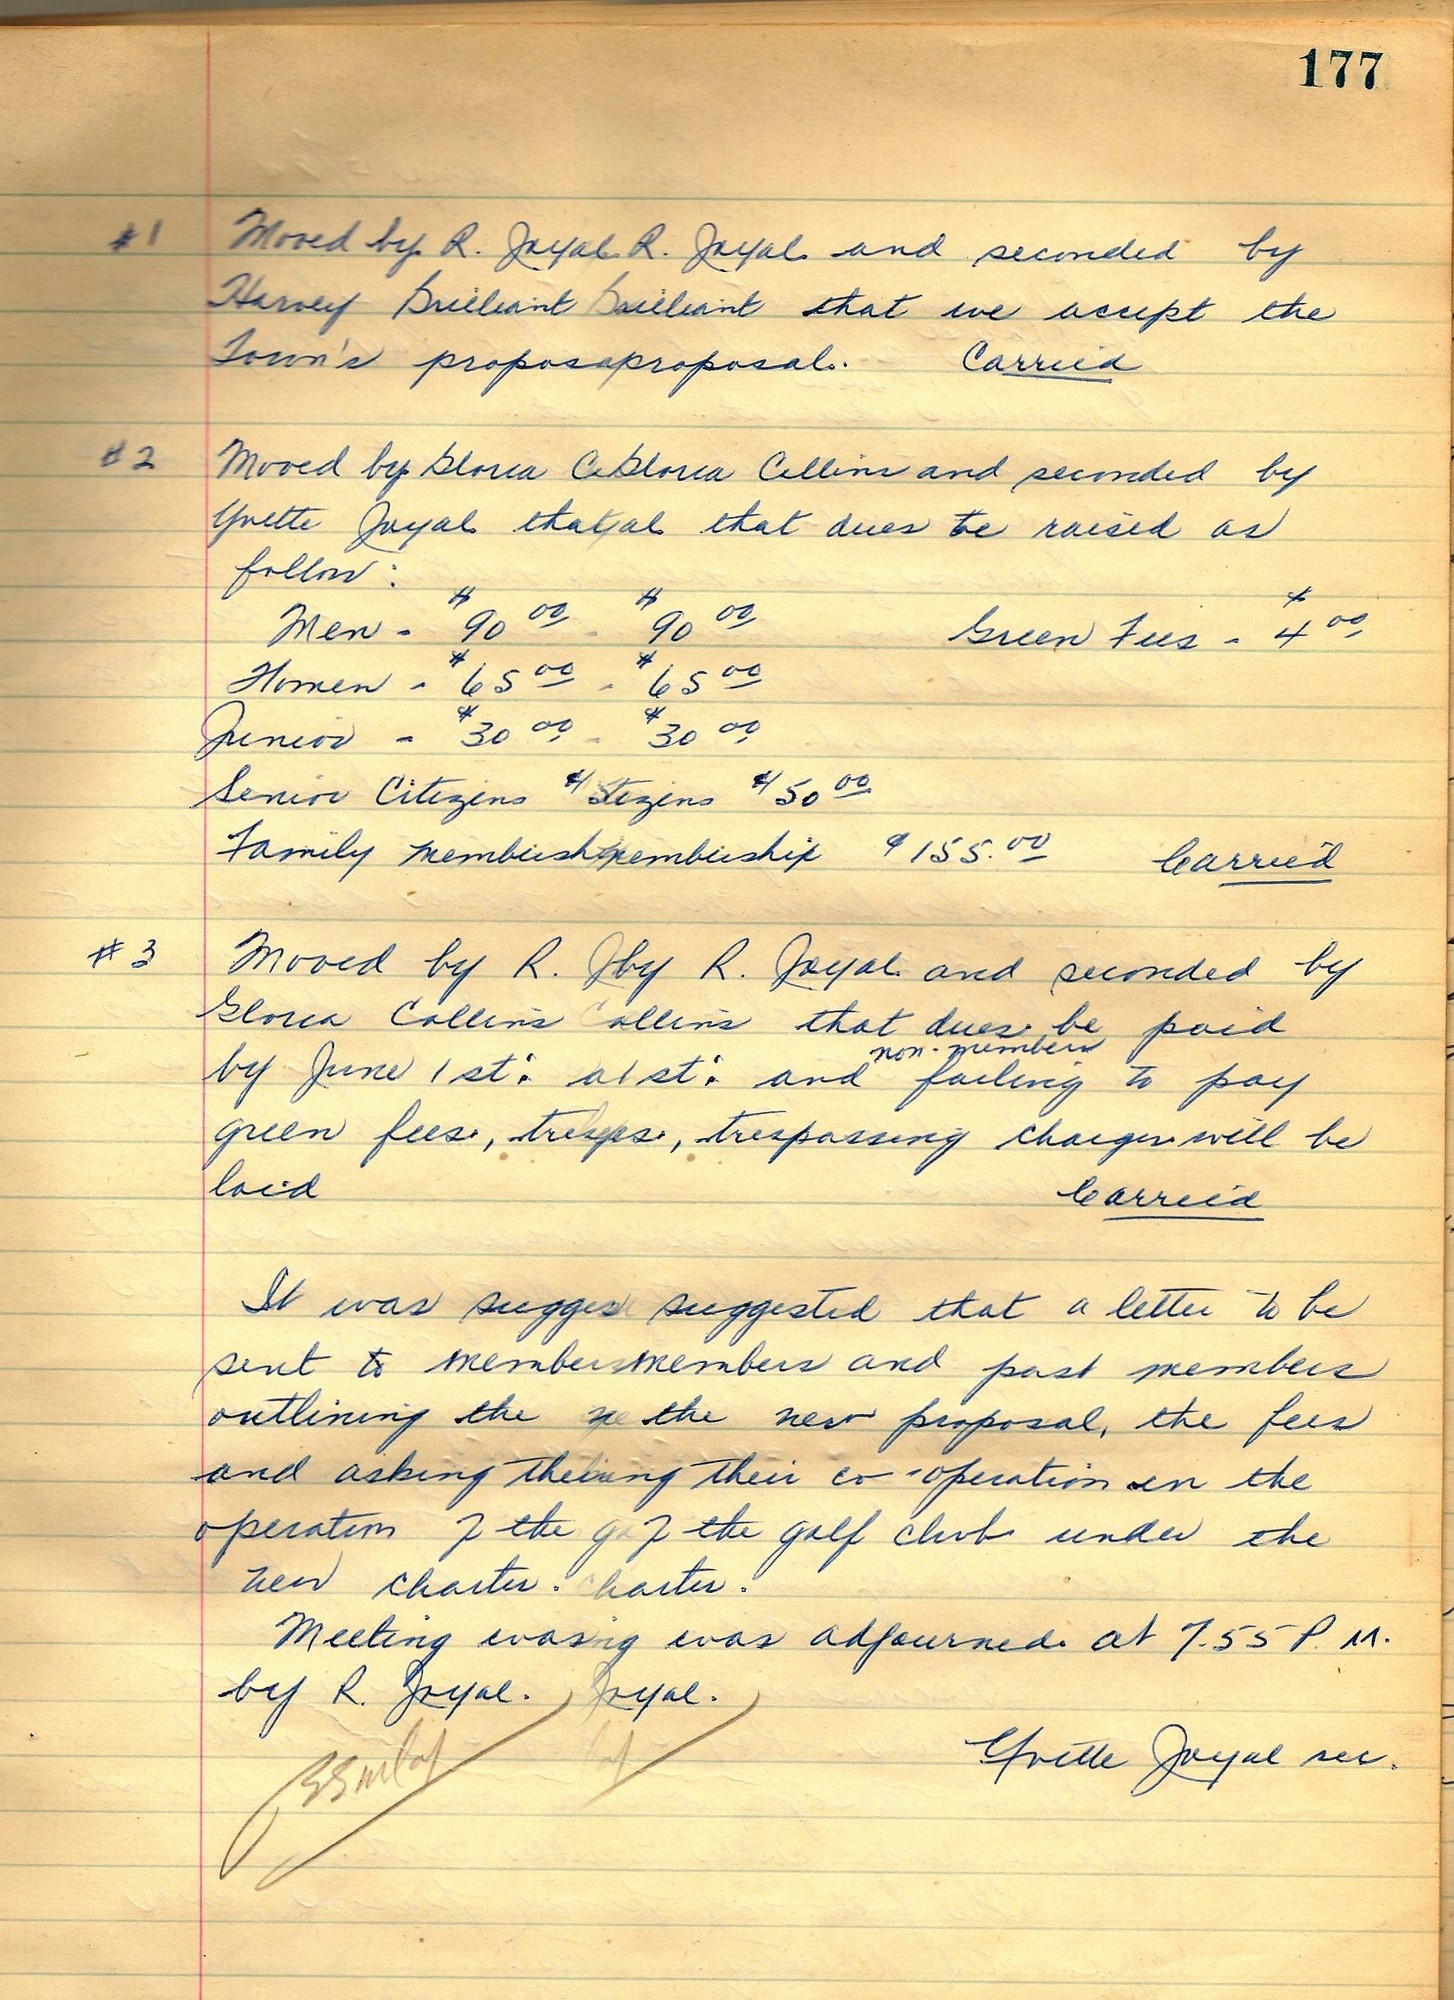 177
#1 Moved by R. Joyal R. Joyal and seconded by
Harvey Brilliant Brilliant that we accept the
Town's proposaproposal. Carried
#2 Moved by Gloria C Gloria Collins and seconded by
Yvette Joyal that al that dues be raised as
follow:
Men - $90.00 - $90.00 Green Fees - $4.00
Women - $65.00 - $65.00
Junior - $30.00 - $30.00
Senior Citizens $ tizens $50.00
Family membershmembership $155.00 Carried
#3 Moved by R. J by R. Joyal and seconded by
Gloria Collins Collins that dues be paid
by June 1st. a 1st. and non-members failing to pay
green fees, tres s, trespassing charges will be
laid Carried
It was sugges suggested that a letter to be
sent to members members and past members
outlining the ne the new proposal, the fees
and asking their ing their co-operation in the
operation of the go f the golf club under the
new charter. charter.
Meeting was ng was adjourned at 7.55 P.M.
by R. Joyal. Joyal.
Yvette Joyal sec.